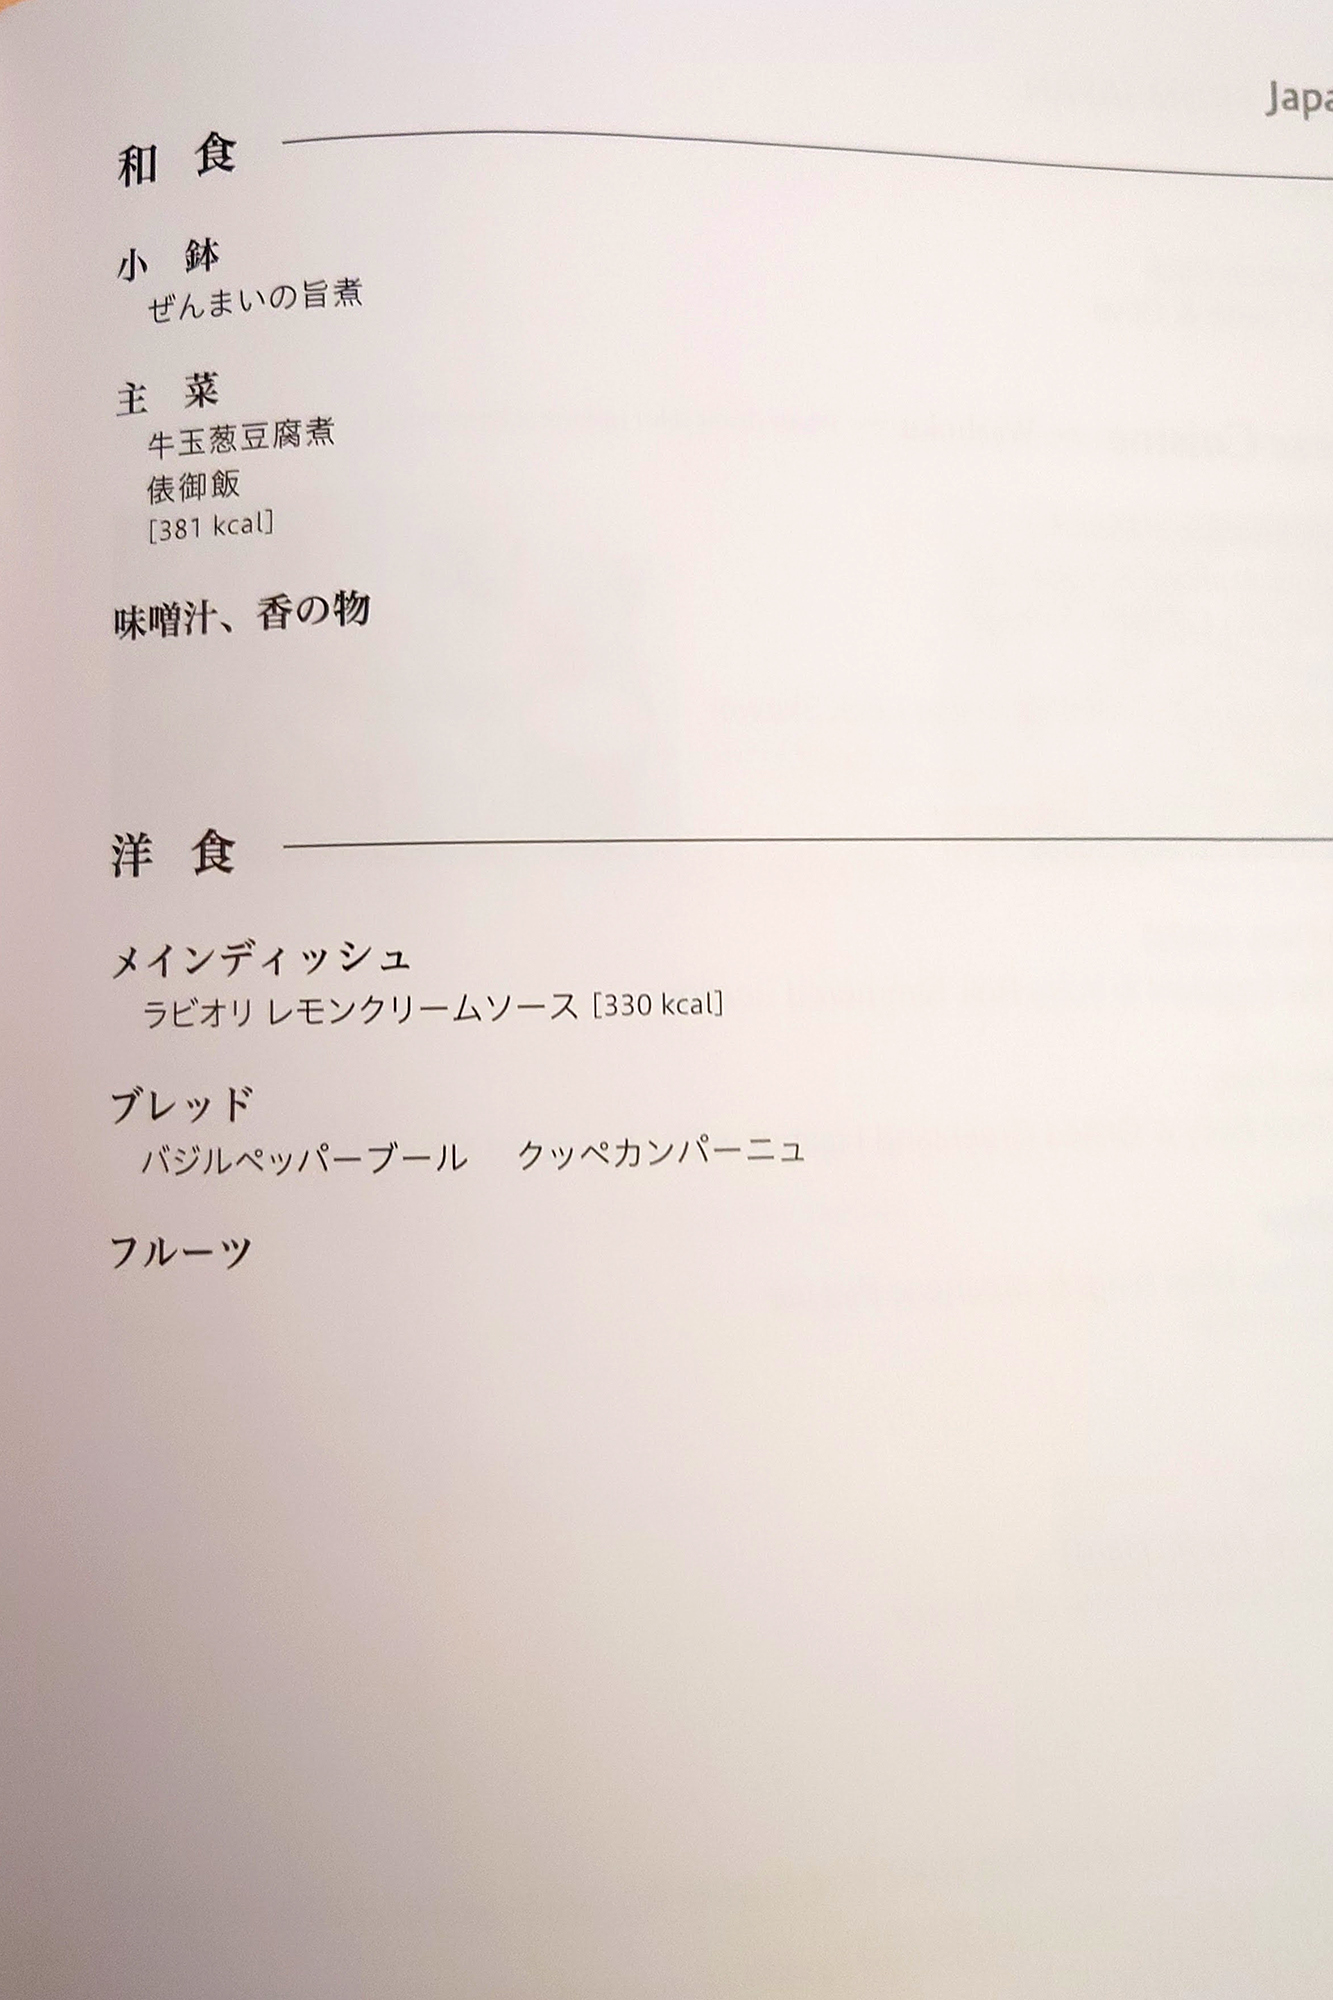 Japa
和 食
小 鉢
ぜんまいの旨煮
主 菜
牛玉葱豆腐煮
俵御飯
[381 kcal]
味噌汁、香の物
洋 食
メインディッシュ
ラビオリ レモンクリームソース [330 kcal]
ブレッド
バジルペッパーブール クッペカンパーニュ
フルーツ